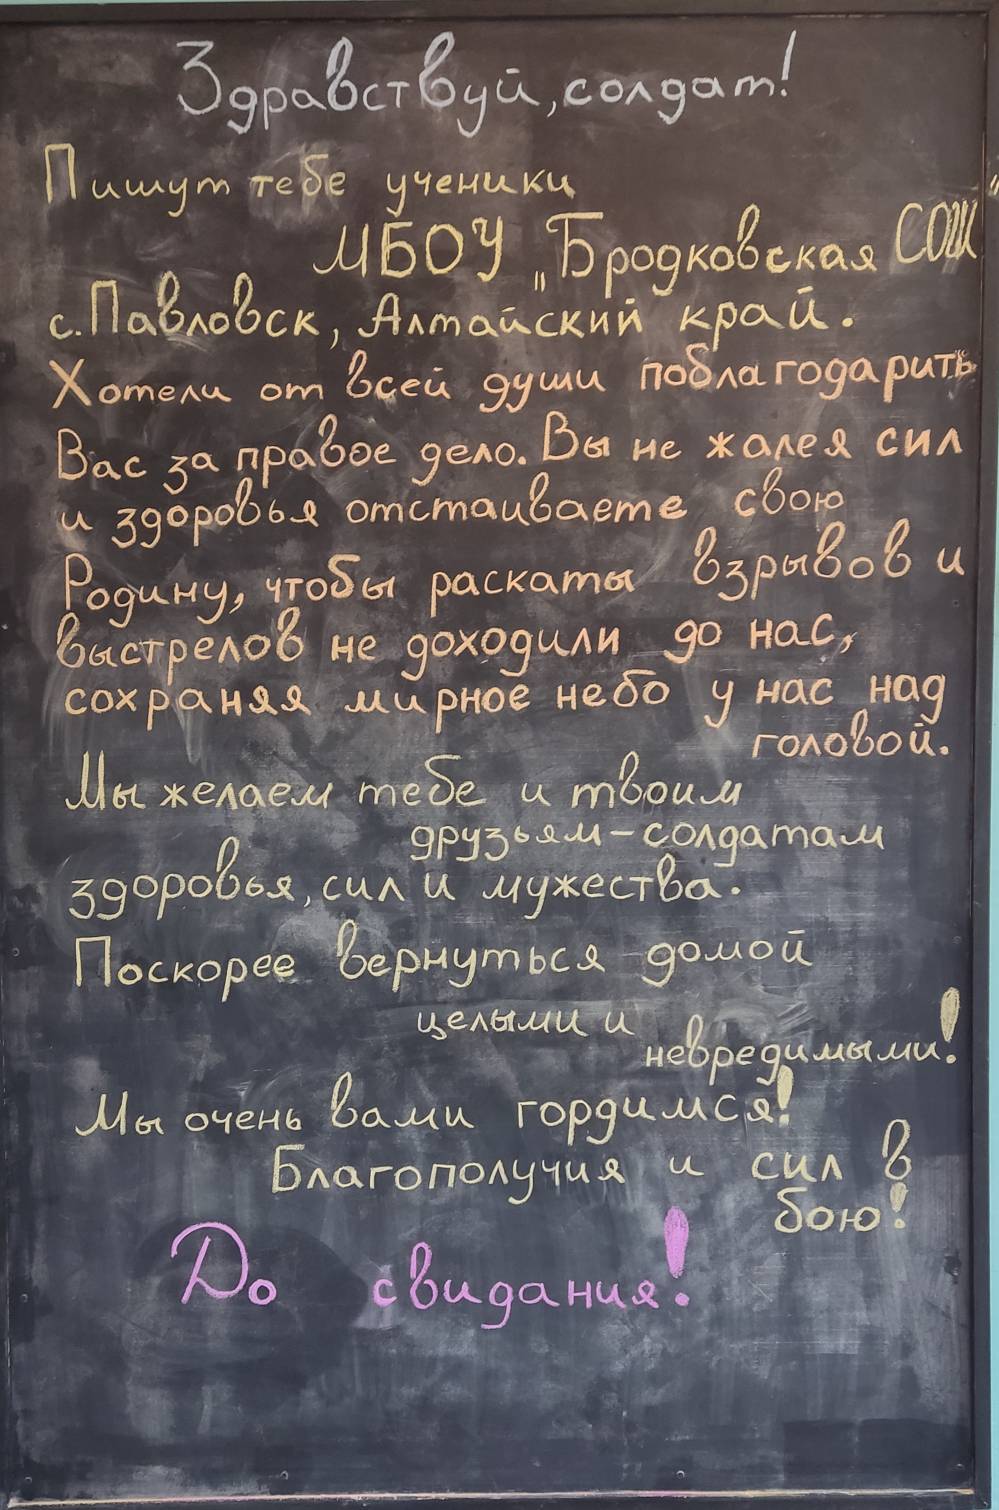 Здравствуй, солдат!
Пишут тебе ученики
МБОУ „Бродковская СОШ"
с. Павловск, Алтайский край.
Хотели от всей души поблагодарить
Вас за правое дело. Вы не жалея сил
и здоровья отстаиваете свою
Родину, чтобы раскаты взрывов и
выстрелов не доходили до нас,
сохраняя мирное небо у нас над
головой.
Мы желаем тебе и твоим
друзьям-солдатам
здоровья, сил и мужества.
Поскорее вернуться домой
целыми и
невредимыми!
Мы очень вами гордимся!
Благополучия и сил в
бою!
До свидания!